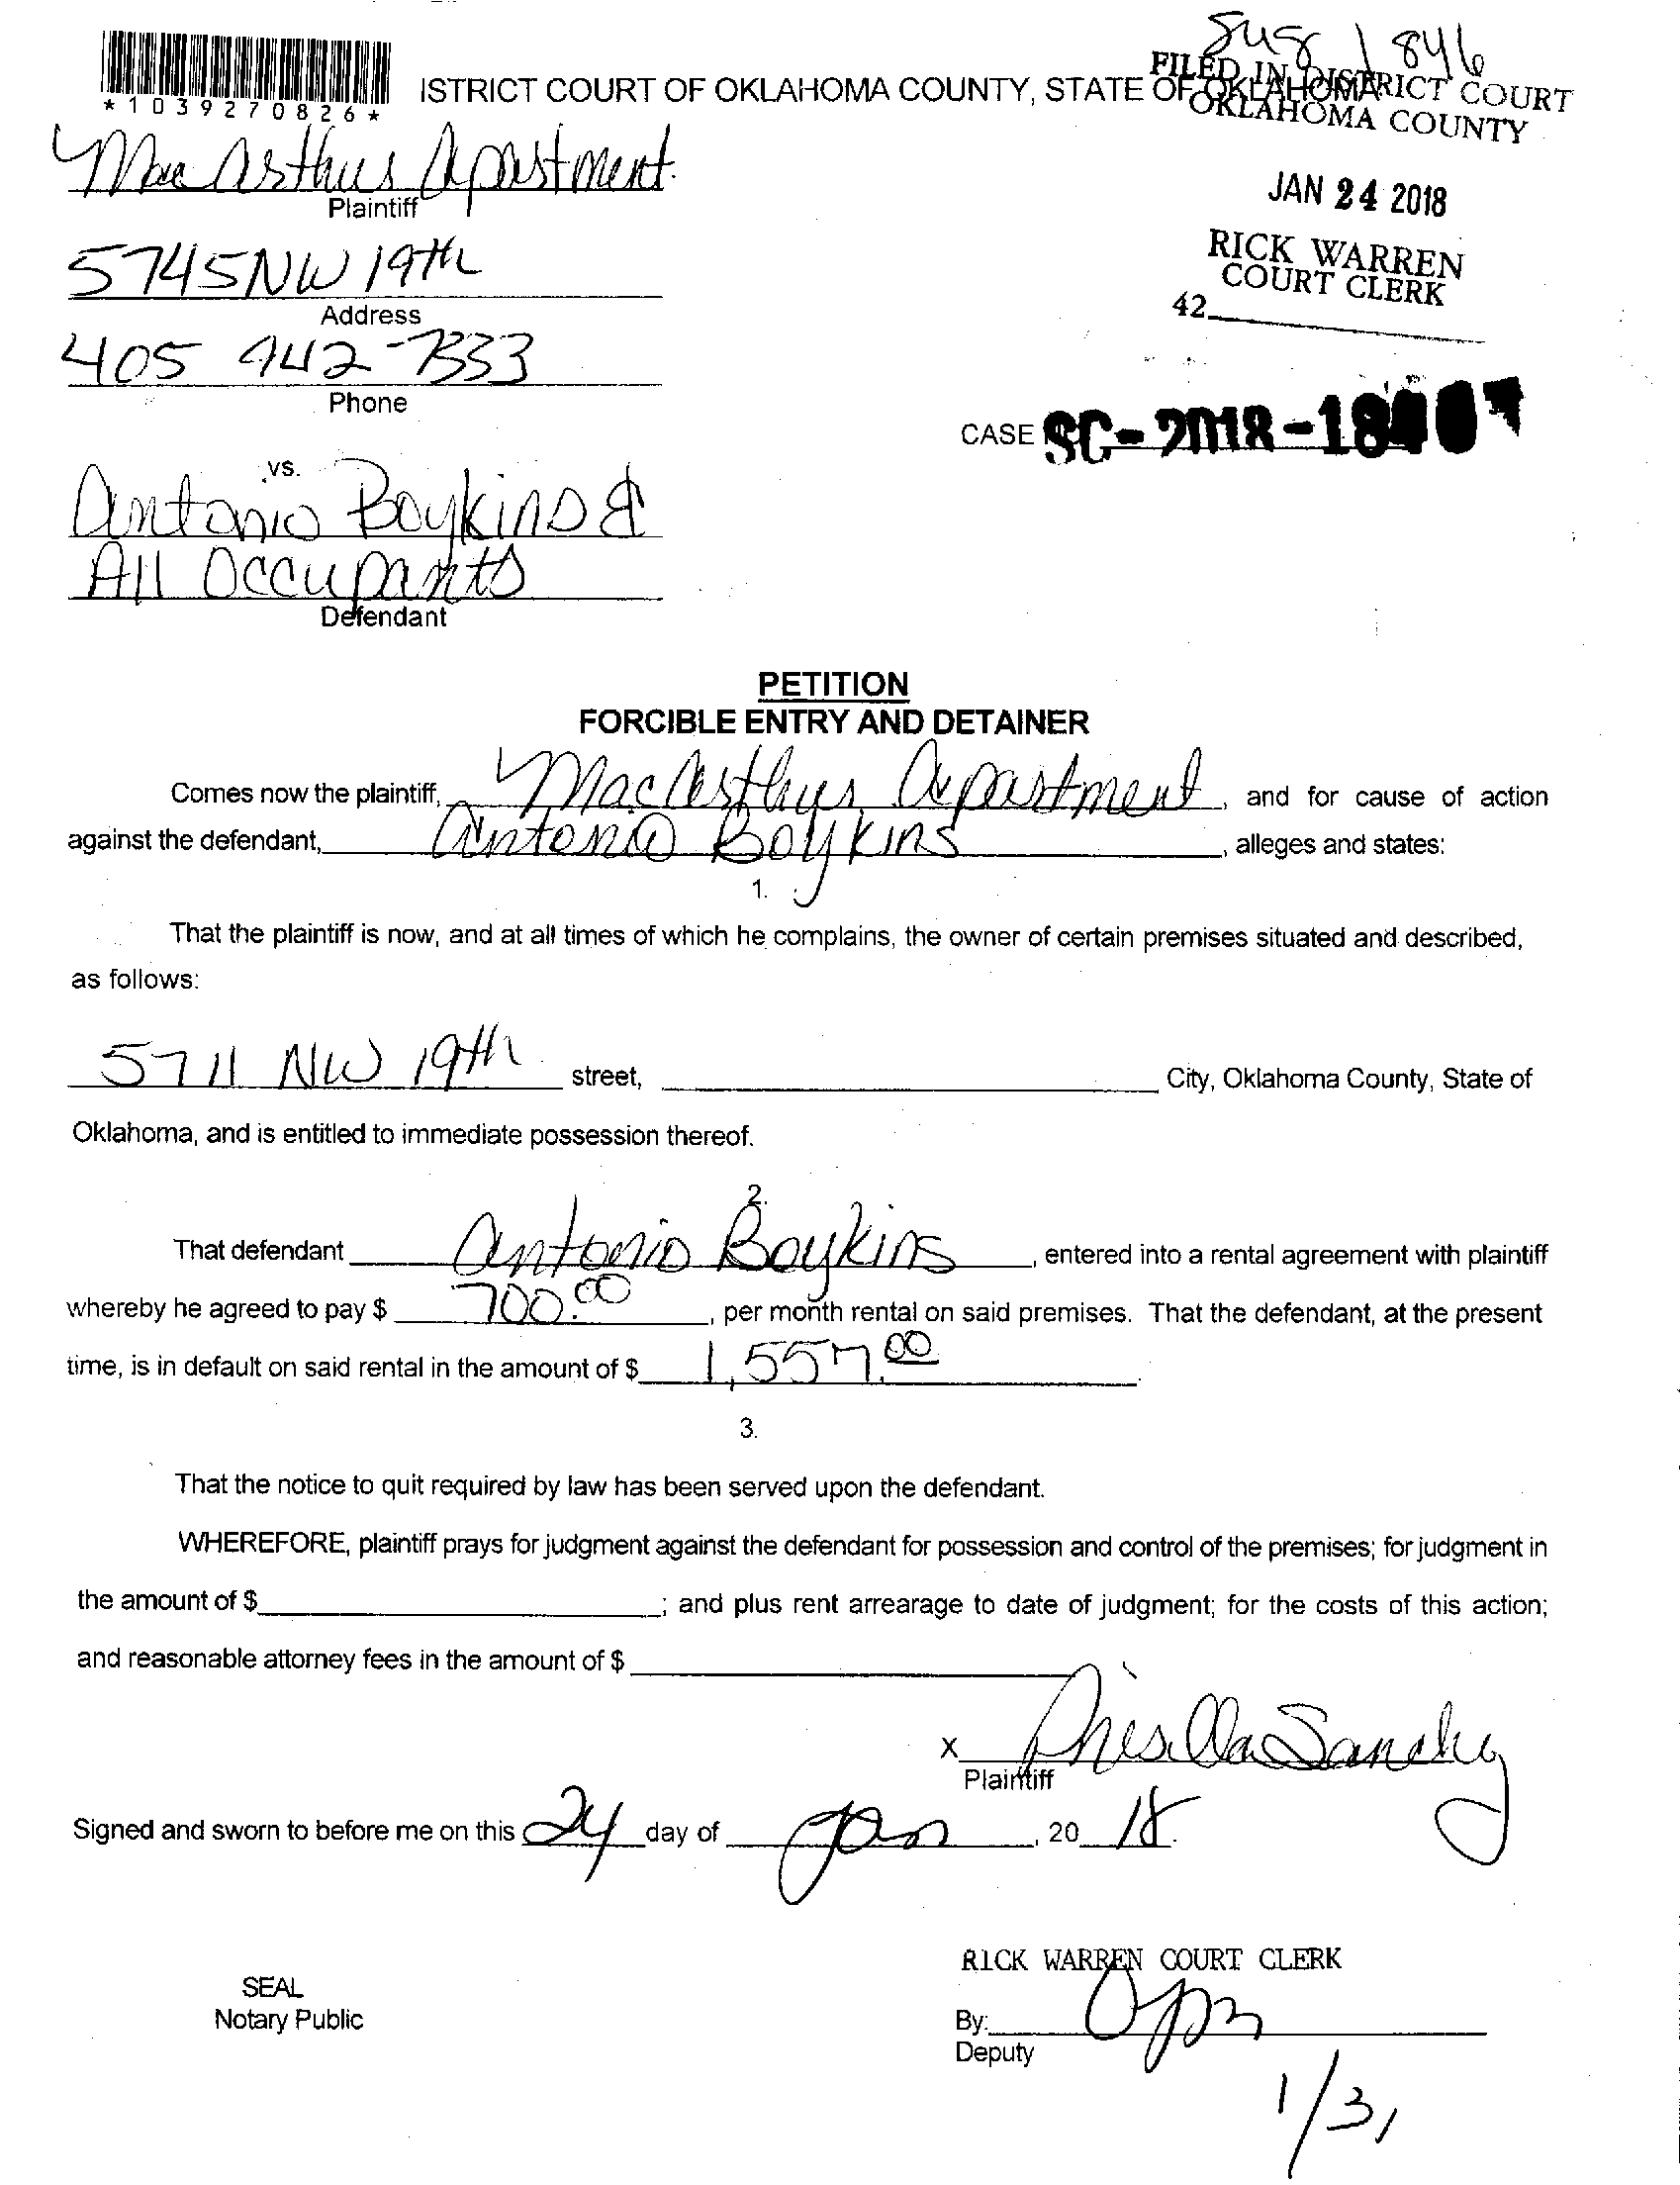 1846
*1039270826*
ISTRICT COURT OF OKLAHOMA COUNTY, STATE OF OKLAHOMA
FILED IN DISTRICT COURT
OKLAHOMA COUNTY
MacArthur Apartment
Plaintiff
JAN 24 2018
5745 NW 19th
Address
RICK WARREN
COURT CLERK
42
405 942-7333
Phone
CASE SC-2018-18
vs.
Antonio Boykins &
All Occupants
Defendant
PETITION
FORCIBLE ENTRY AND DETAINER
Comes now the plaintiff, MacArthur Apartment, and for cause of action
against the defendant, Antonio Boykins, alleges and states:
1.
That the plaintiff is now, and at all times of which he complains, the owner of certain premises situated and described,
as follows:
5711 NW 19th street, City, Oklahoma County, State of
Oklahoma, and is entitled to immediate possession thereof.
2.
That defendant Antonio Boykins, entered into a rental agreement with plaintiff
whereby he agreed to pay $ 700.00, per month rental on said premises. That the defendant, at the present
time, is in default on said rental in the amount of $ 1,557.00.
3.
That the notice to quit required by law has been served upon the defendant.
WHEREFORE, plaintiff prays for judgment against the defendant for possession and control of the premises; for judgment in
the amount of $ ; and plus rent arrearage to date of judgment; for the costs of this action;
and reasonable attorney fees in the amount of $
x Pricilla Sanchez
Plaintiff
Signed and sworn to before me on this 24 day of Jan, 20 18.
RICK WARREN COURT CLERK
SEAL
Notary Public
By:
Deputy
1/31